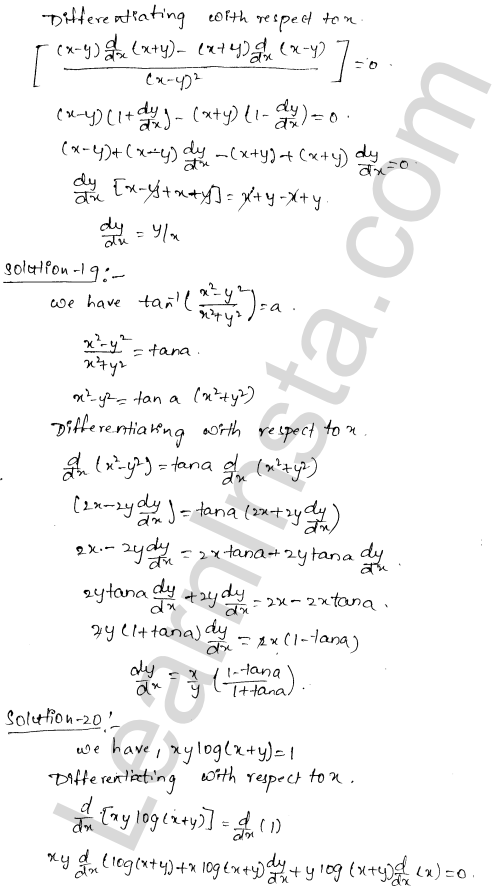 Differentiating with respect to x.
[ ((x-y) d/dx (x+y) - (x+y) d/dx (x-y)) / (x-y)² ] = 0.
(x-y) (1+ dy/dx) - (x+y) (1- dy/dx) = 0.
(x-y) + (x-y) dy/dx - (x+y) + (x+y) dy/dx = 0
dy/dx [x-y+x+y] = x+y-x+y
dy/dx = y/x
Solution-19:-
we have tan⁻¹ ( (x²-y²)/(x²+y²) ) = a.
(x²-y²)/(x²+y²) = tana.
x²-y² = tan a (x²+y²)
Differentiating with respect to x.
d/dx (x²-y²) = tana d/dx (x²+y²)
(2x-2y dy/dx) = tana (2x+2y dy/dx)
2x - 2y dy/dx = 2x tana + 2y tana dy/dx.
2y tana dy/dx + 2y dy/dx = 2x - 2x tana.
2y (1+tana) dy/dx = 2x (1-tana)
dy/dx = x/y ( (1-tana)/(1+tana) ).
Solution-20:-
we have, xy log(x+y) = 1
Differentiating with respect to x.
d/dx [xy log(x+y)] = d/dx (1)
xy d/dx (log(x+y) + x log(x+y) dy/dx + y log (x+y) d/dx (x) = 0.
LearnInsta.com